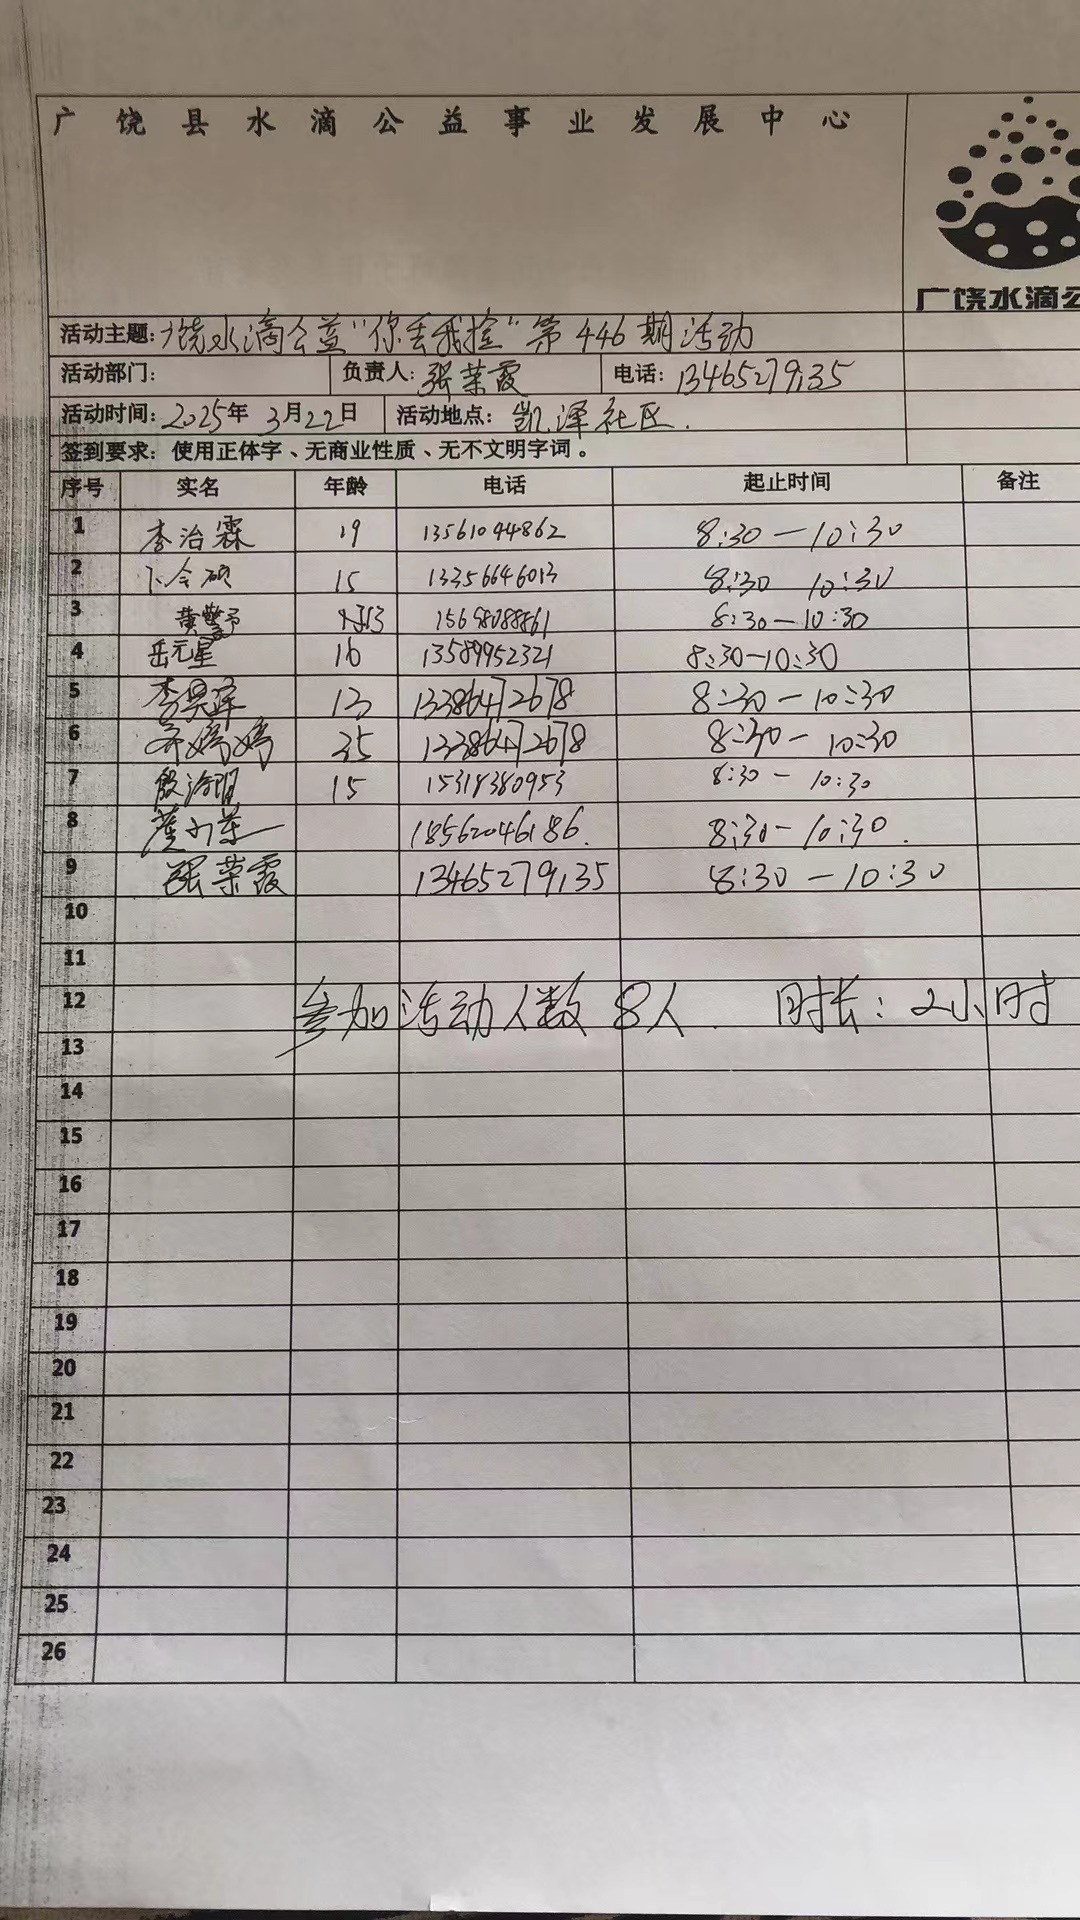 广饶县水滴公益事业发展中心
广饶水滴公
活动主题:广饶水滴公益“你丢我捡”第446期活动
活动部门: 负责人:张荣霞 电话:13465279135
活动时间:2025年3月22日 活动地点:凯泽社区.
签到要求: 使用正体字、无商业性质、无不文明字词。
序号 实名 年龄 电话 起止时间 备注
1 李治霖 19 13561094862 8:30—10:30
2 15 13356646013 8:30 10:30
3 黄 13 8:30—10:30
4 岳元星 16 13589952321 8:30—10:30
5 李昊 13 13386472678 8:30—10:30
6 齐婷婷 35 13386472678 8:30—10:30
7 殷 15 15318380953 8:30—10:30
8 18562046186. 8:30—10:30.
9 张荣霞 13465279135 8:30—10:30
10
11
12 参加活动人数8人. 时长:2小时
13
14
15
16
17
18
19
20
21
22
23
24
25
26